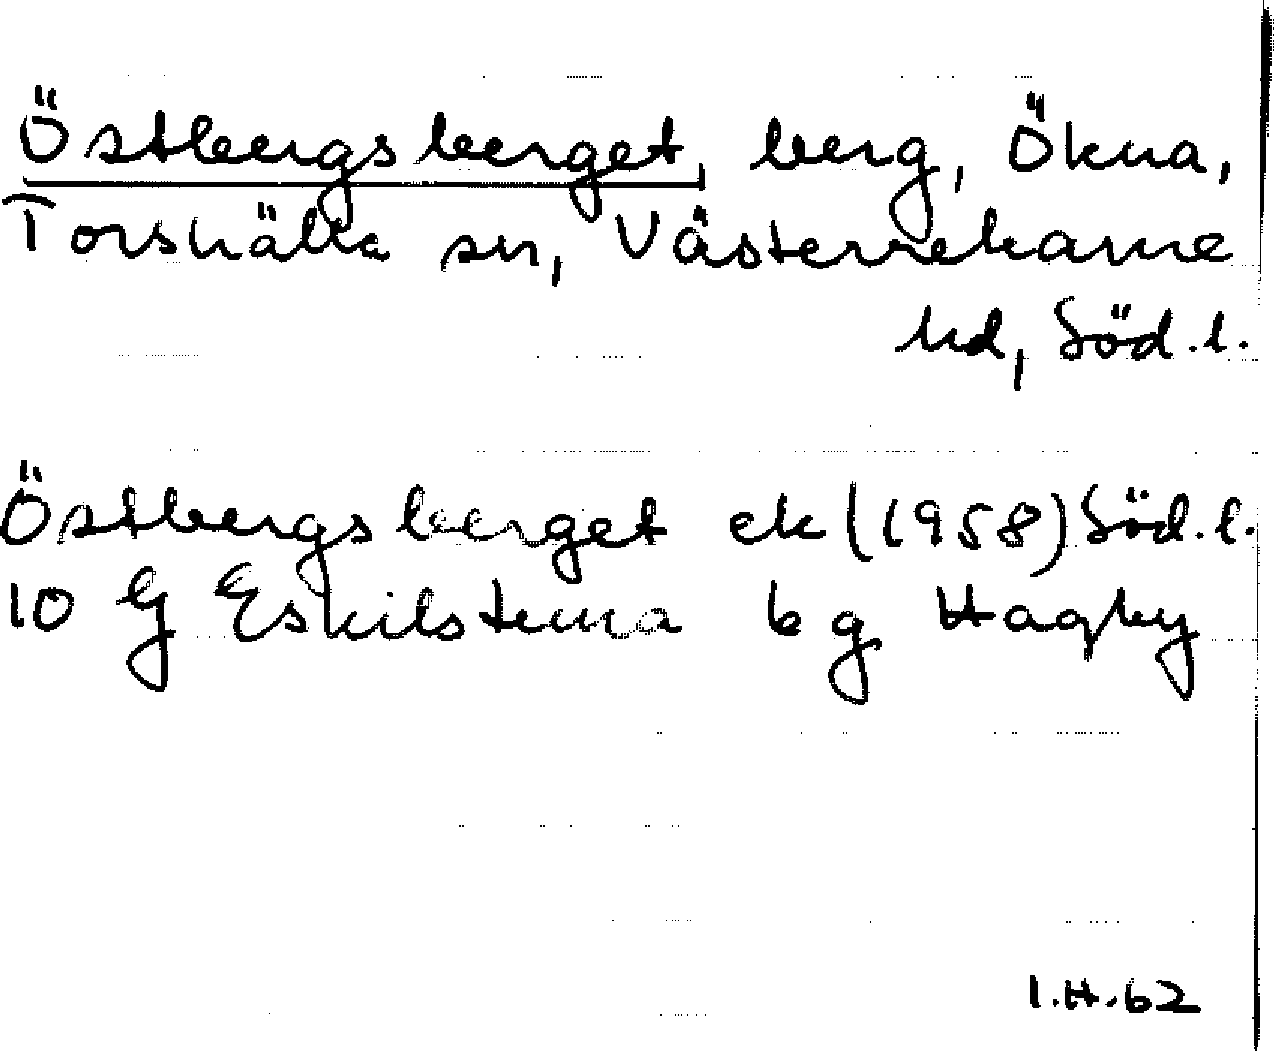 Östbergsberget, berg, Ökna,
Torshälla sn, Västerrekarne
hd, Söd.l.
Östbergsberget ek (1958) Söd.l.
10 G Eskilstuna 6 g Hagby
I.H.62